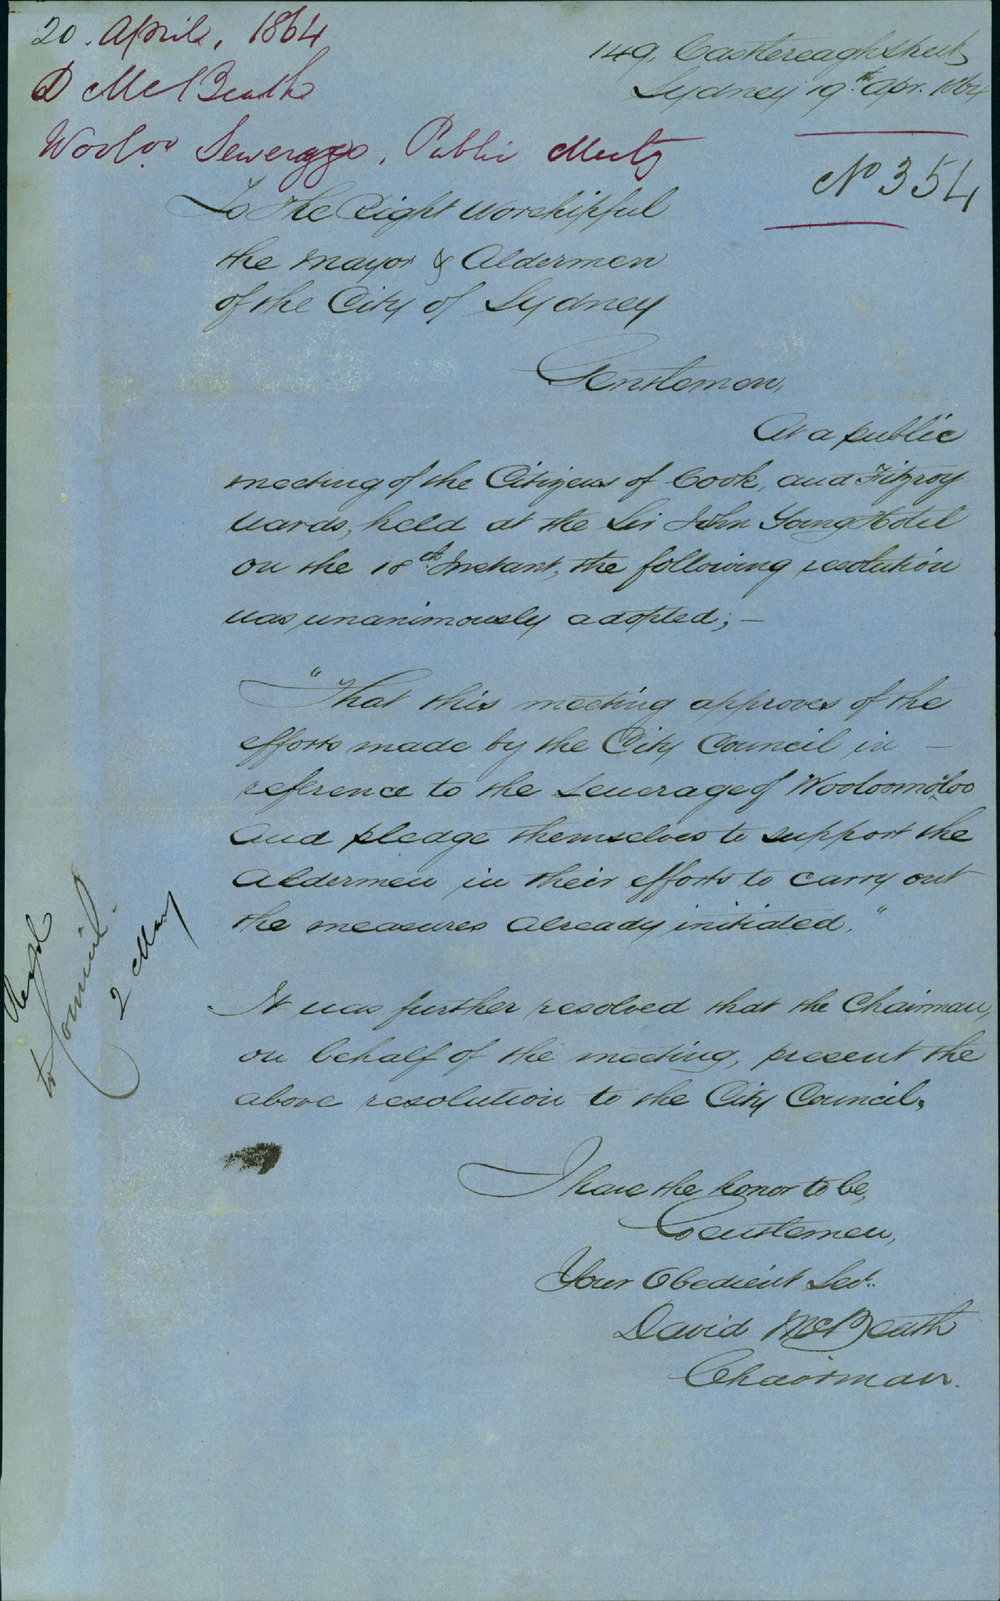 20. April, 1864
D McBeath
Wooloo Sewerage, Public Meetg
149, Castlereagh Street
Sydney 19th Apr. 1864
No 354
To the Right Worshipful
the Mayor & Aldermen
of the City of Sydney
Gentlemen,
At a public
meeting of the Citizens of Cook, and Fitzroy
wards, held at the Sir John Young Hotel
on the 18th Instant, the following resolution
was unanimously adopted; —
"That this meeting approves of the
efforts made by the City Council in —
reference to the sewerage of Wooloomooloo
and pledge themselves to support the
Aldermen in their efforts to carry out
the measures already initiated."
It was further resolved that the Chairman,
on behalf of the meeting, present the
above resolution to the City Council.
I have the honor to be,
Gentlemen,
Your Obedient Svt.
David McBeath
Chairman.
to Council.
2 May